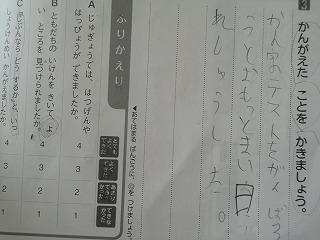 3 かんがえた ことを かきましょう。
かん字のテストをがんばろ
うとおもってまい日
れんしゅうした。
ふりかえり
◀あてはまる ばんごうに、○を つけましょう。
とても よく できた
よく できた
あまり できな かった
できな かった
A じゅぎょうでは、はつげんや
はっぴょうが できましたか。
4 3 2 1
B ともだちの いけんを きいて、よ
い ところを 見つけられましたか。
4 3 2 1
C 「じぶんなら どうするか」と、いっ
しょうけんめい かんがえましたか。
4 3 2 1